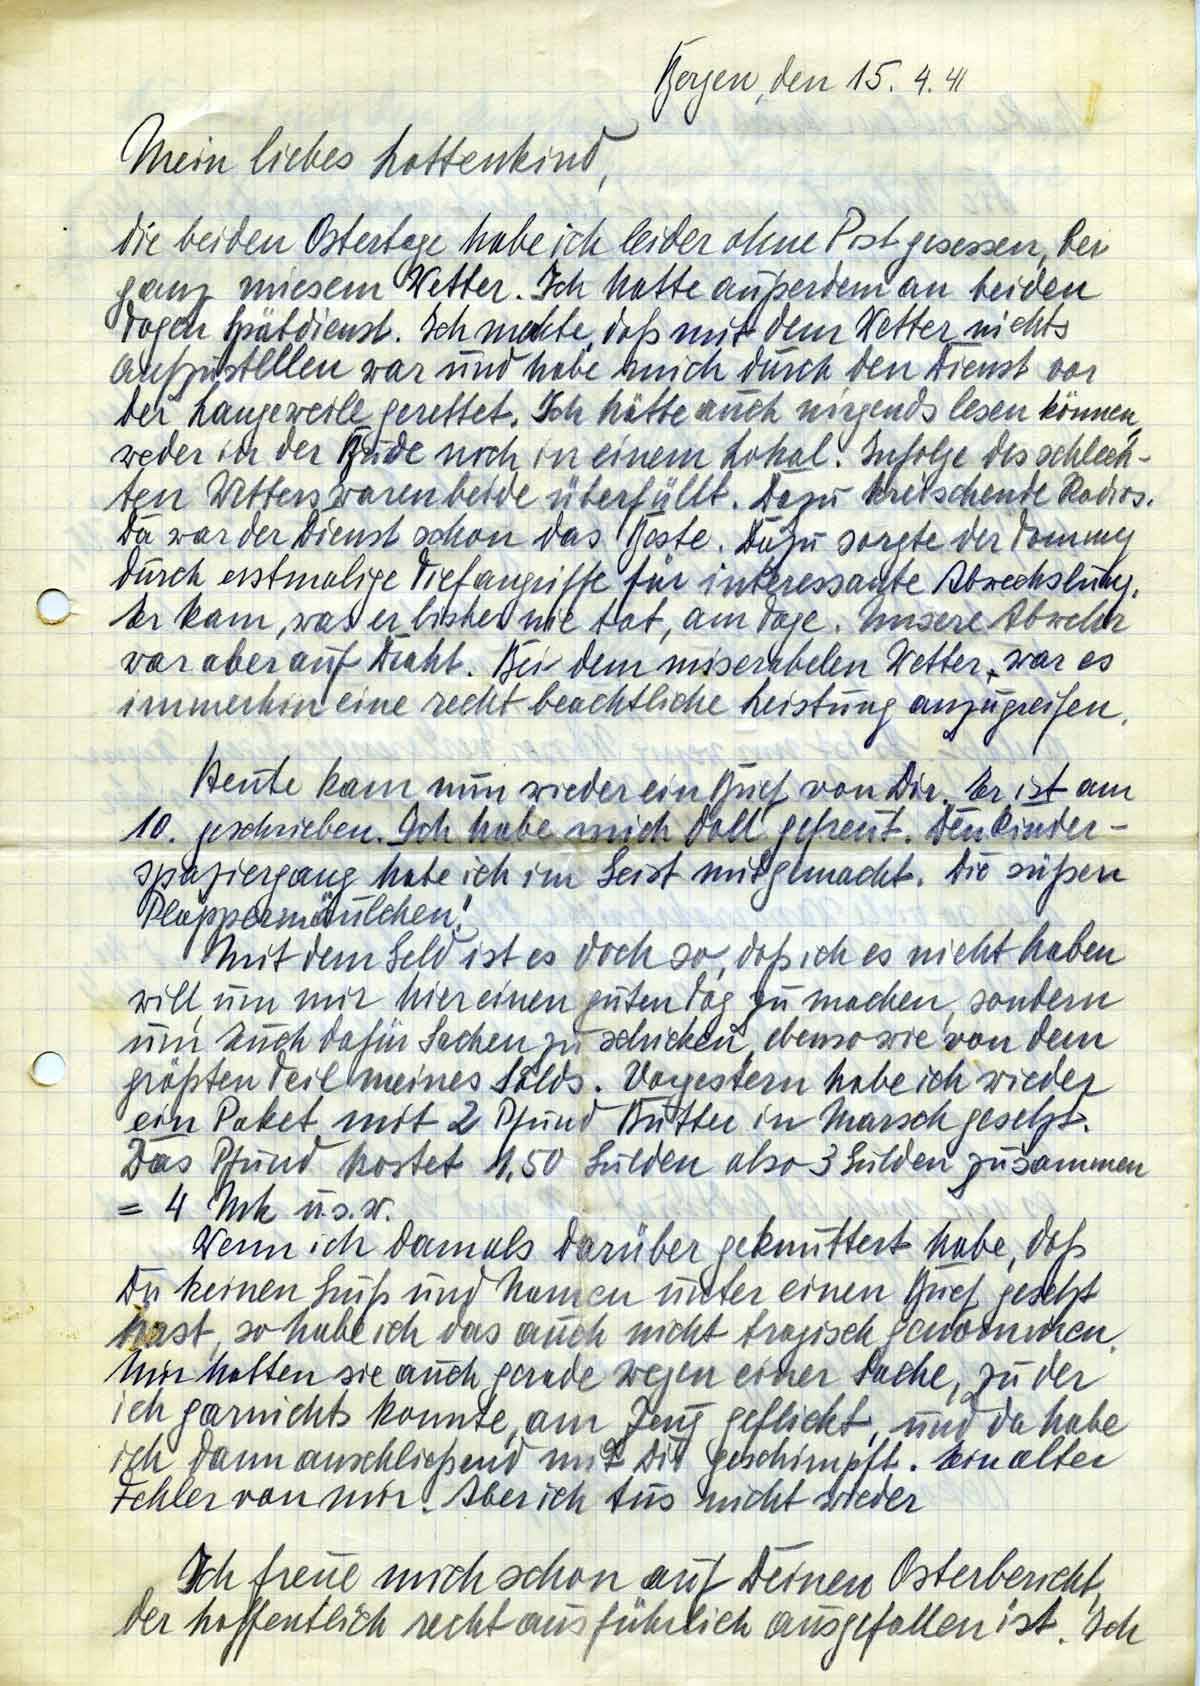 Bergen, den 15. 4. 41
Mein liebes Lottenkind,
die beiden Ostertage habe ich leider ohne Post gesessen, bei
ganz miesem Wetter. Ich hatte außerdem an beiden
Tagen Spätdienst. Ich merkte, daß mit dem Wetter nichts
aufzustellen war und habe mich durch den Dienst vor
der Langeweile gerettet. Ich hätte auch nirgends lesen können,
weder in der Bude noch in einem Lokal. Infolge des schlech-
ten Wetters waren beide überfüllt. Dazu kreischende Radios.
Da war der Dienst schon das Beste. Dazu sorgte der Tommy
durch erstmalige Tiefangriffe für interessante Abwechslung.
Er kam, was er bisher nie tat, am Tage. Unsere Abwehr
war aber auf Draht. Bei dem miserabelen Wetter, war es
immerhin eine recht beachtliche Leistung anzugreifen.
Heute kam nun wieder ein Brief von Dir. Er ist am
10. geschrieben. Ich habe mich doll gefreut. Den Kinder-
spaziergang habe ich im Geist mitgemacht. Die süßen
Plappermäulchen!
Mit dem Geld ist es doch so, daß ich es nicht haben
will, um mir hier einen guten Tag zu machen, sondern
um Euch dafür Sachen zu schicken, ebenso wie von dem
größten Teil meines Solds. Vorgestern habe ich wieder
ein Paket mit 2 Pfund Butter in Marsch gesetzt.
Das Pfund kostet 1,50 Gulden also 3 Gulden zusammen
= 4 Mk u.s.w.
Wenn ich damals darüber geknuttert habe, daß
Du keinen Gruß und Namen unter einen Brief gesetzt
hast, so habe ich das auch nicht tragisch genommen.
Mir hatten sie auch gerade wegen einer Sache, zu der
ich garnichts konnte, am Zeug geflickt, und da habe
ich dann anschließend mit Dir geschimpft. Ein alter
Fehler von mir. Aber ich tus nicht wieder
Ich freue mich schon auf Deinen Osterbericht,
der hoffentlich recht ausführlich ausgefallen ist. Ich